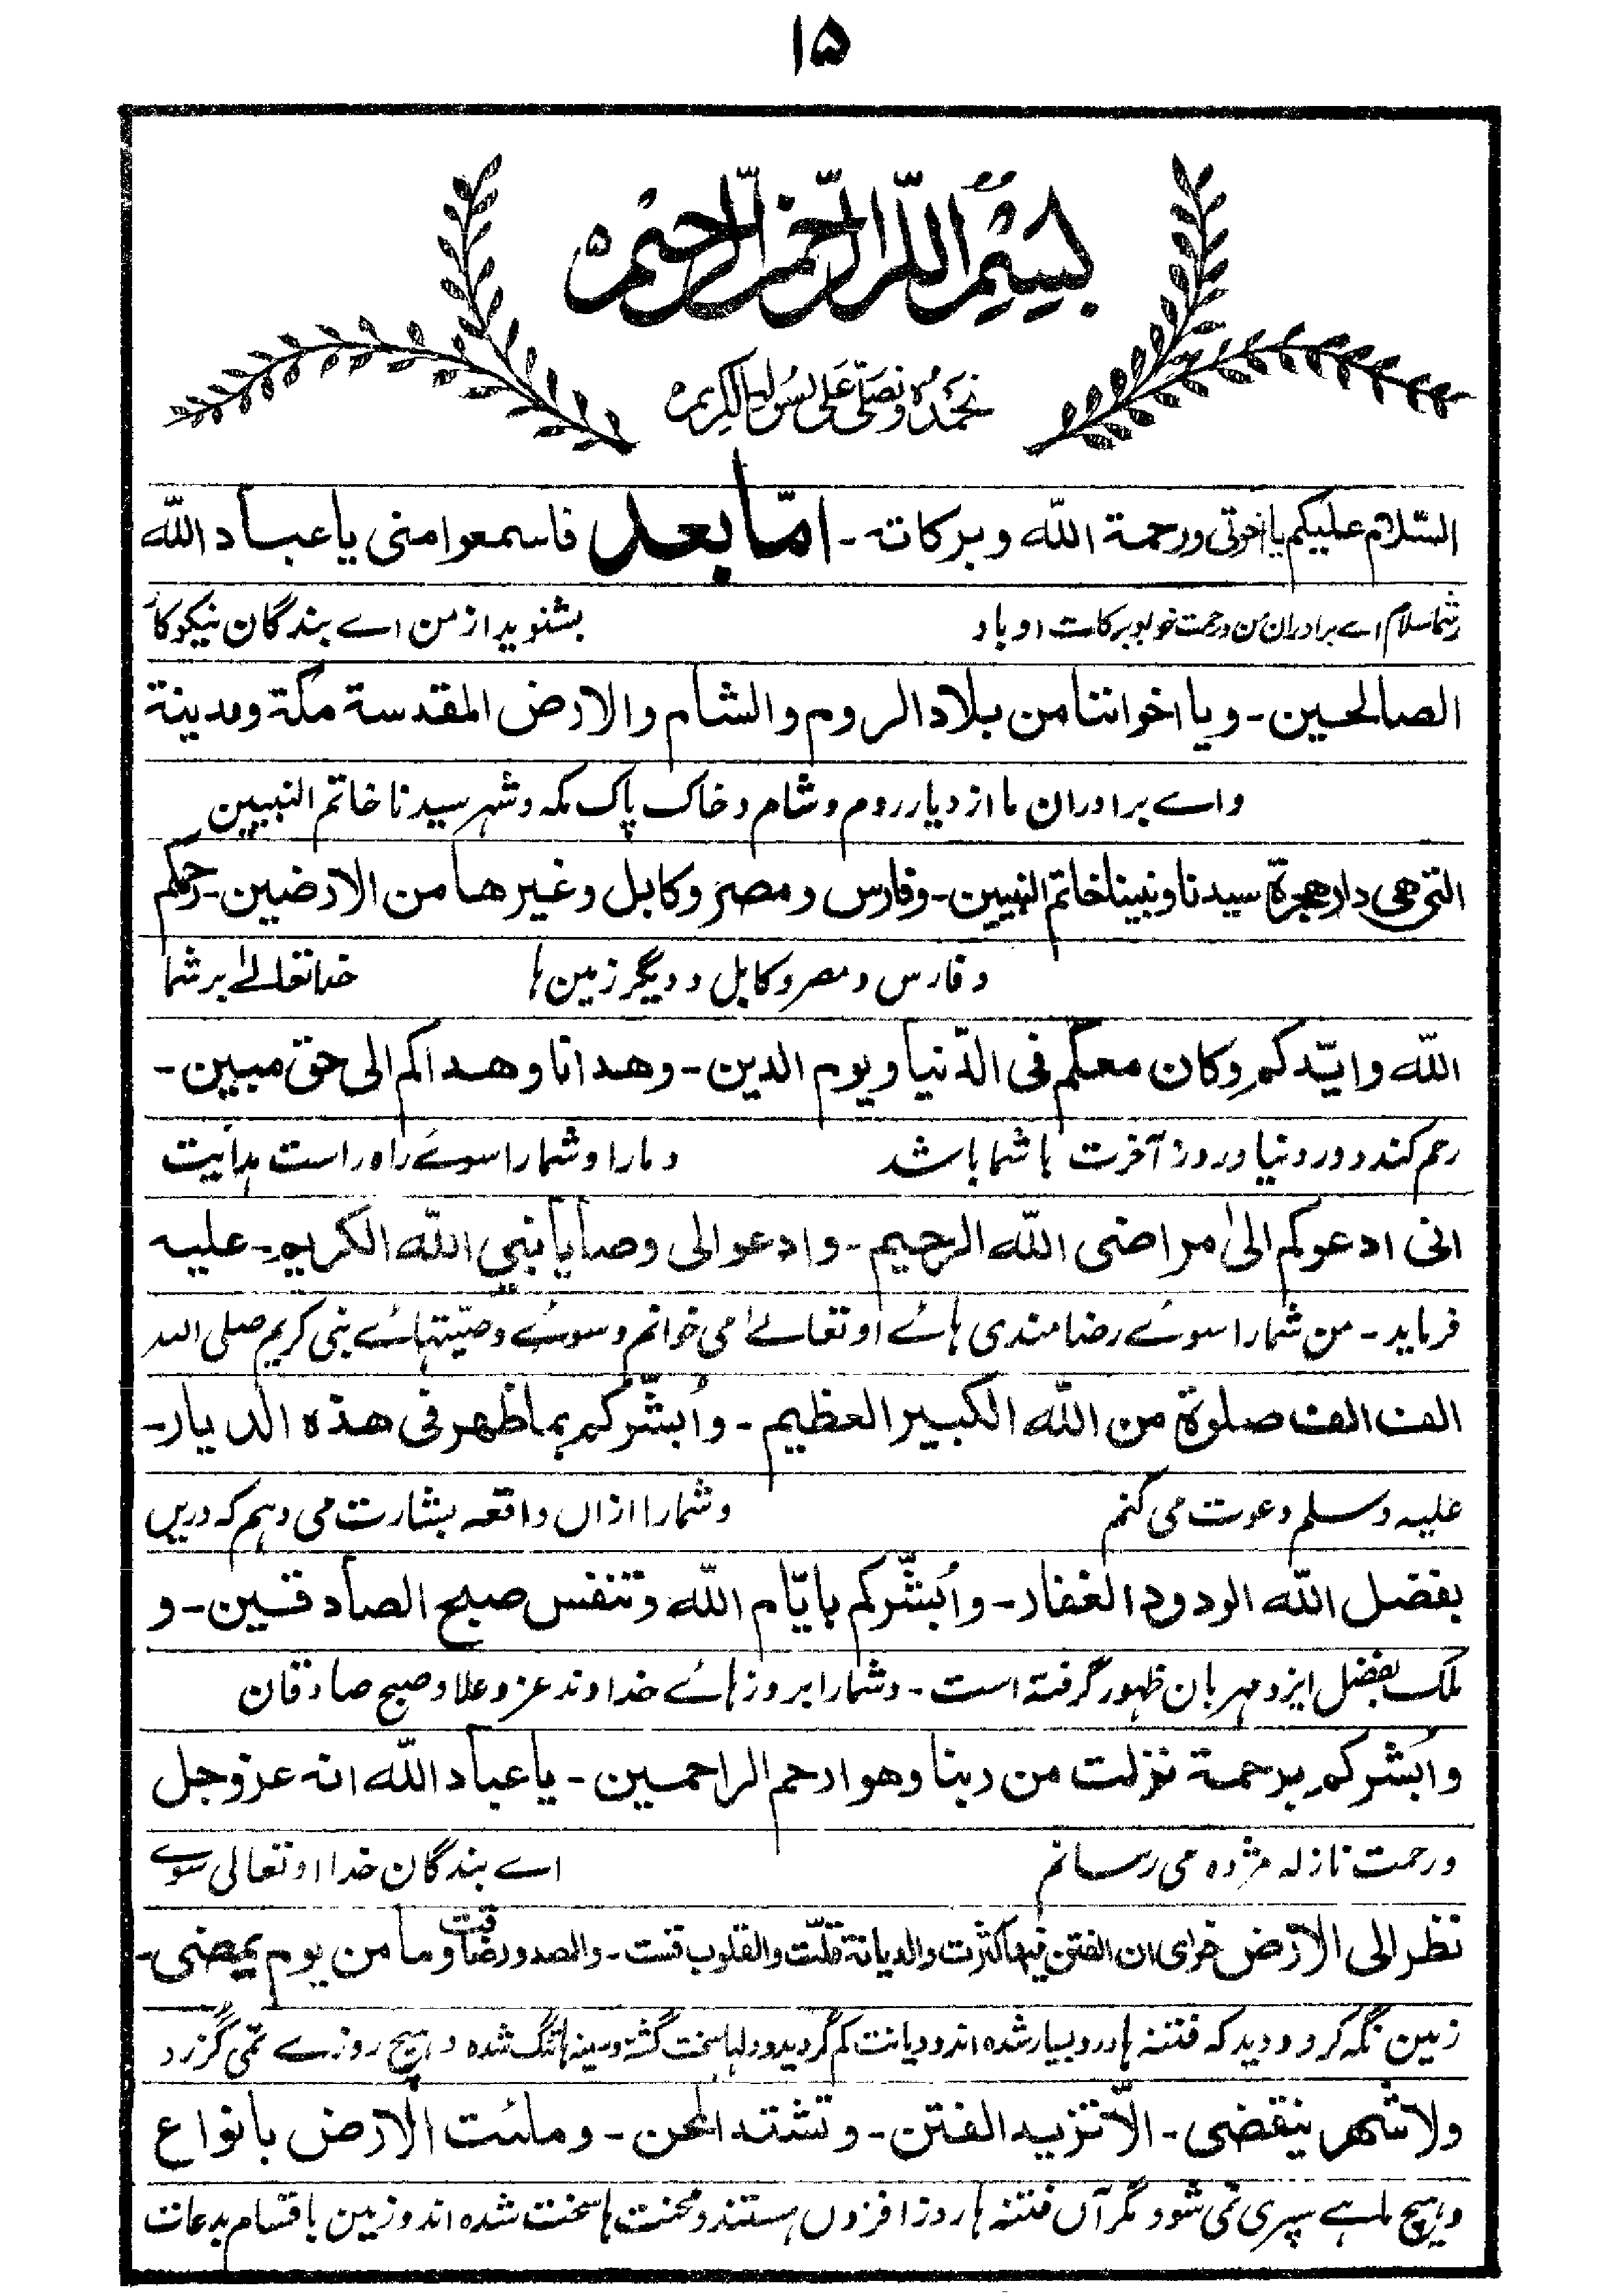 ۱۵
بسم اللّٰہ الرّحمٰن الرّحیم
نحمدہ ونصلّی علی رسولہ الکریم
السّلام علیکم یا اخوتی ورحمة اللّٰه وبرکاته۔ امّا بعد فاسمعوا منی یا عباد اللّٰه
بر شما سلام اے برادران من و رحمت خدا و برکات او باد بشنوید از من اے بندگان نیکوکار
الصالحین۔ ویا اخواننا من بلاد الروم والشام والارض المقدسة مکة ومدینة
و اے برادران ما از دیار روم و شام و خاک پاک مکہ و شہر سیدنا خاتم النبیین
التی هی دار هجرة سیدنا ونبینا خاتم النبیین۔ وفارس ومصر وکابل وغیرها من الارضین۔ رحمکم
و فارس و مصر و کابل و دیگر زمین ہا خدا تعالےٰ بر شما
اللّٰه وایّدکم وکان معکم فی الدّنیا ویوم الدین۔ وهدانا وهداکم الی حق مبین۔
رحم کند و در دنیا و روز آخرت با شما باشد و مارا و شمارا سوئے راہ راست ہدایت
انی ادعوکم الیٰ مراضی اللّٰه الرحیم۔ وادعو الی وصایا نبی اللّٰه الکریم۔ علیه
فرماید۔ من شمارا سوئے رضامندی ہائے او تعالےٰ می خوانم و سوئے وصیّتہائے نبی کریم صلی اللہ
الف الف صلوة من اللّٰه الکبیر العظیم۔ وأبشّرکم بما ظهر فی هذه الدیار۔
علیہ وسلم دعوت می کنم و شمارا ازاں واقعہ بشارت می دہم کہ دریں
بفضل اللّٰه الودود الغفار۔ وأبشّرکم بایّام اللّٰه وتنفس صبح الصادقین۔ و
ملک بفضل ایزد مہربان ظہور گرفتہ است۔ و شمارا بروزہائے خداوند عز و علا و صبح صادقان
وأبشرکم برحمة نزلت من ربنا وهو ارحم الراحمین۔ یا عباد اللّٰه انه عزوجل
و رحمت نازلہ مژدہ می رسانم اے بندگان خدا او تعالی سوے
نظر الی الارض فرای ان الفتن فیها کثرت والدیانة قلّت والقلوب قست۔ والصدور ضاقت وما من یوم یمضی۔
زمین نگہ کرد و دید کہ فتنہ ہا درو بسیار شدہ اند و دیانت کم گردید و دلہا سخت گشتہ و سینہ ہا تنگ شدہ و ہیچ روزے نمی گزرد
ولا شهر ینقضی۔ الّا تزید الفتن۔ وتشتد المحن۔ وملئت الارض بانواع
و ہیچ ماہے سپری نمی شود مگر آں فتنہ ہا روز افزوں ہستند و محنت ہا سخت شدہ اند و زمین باقسام بدعات